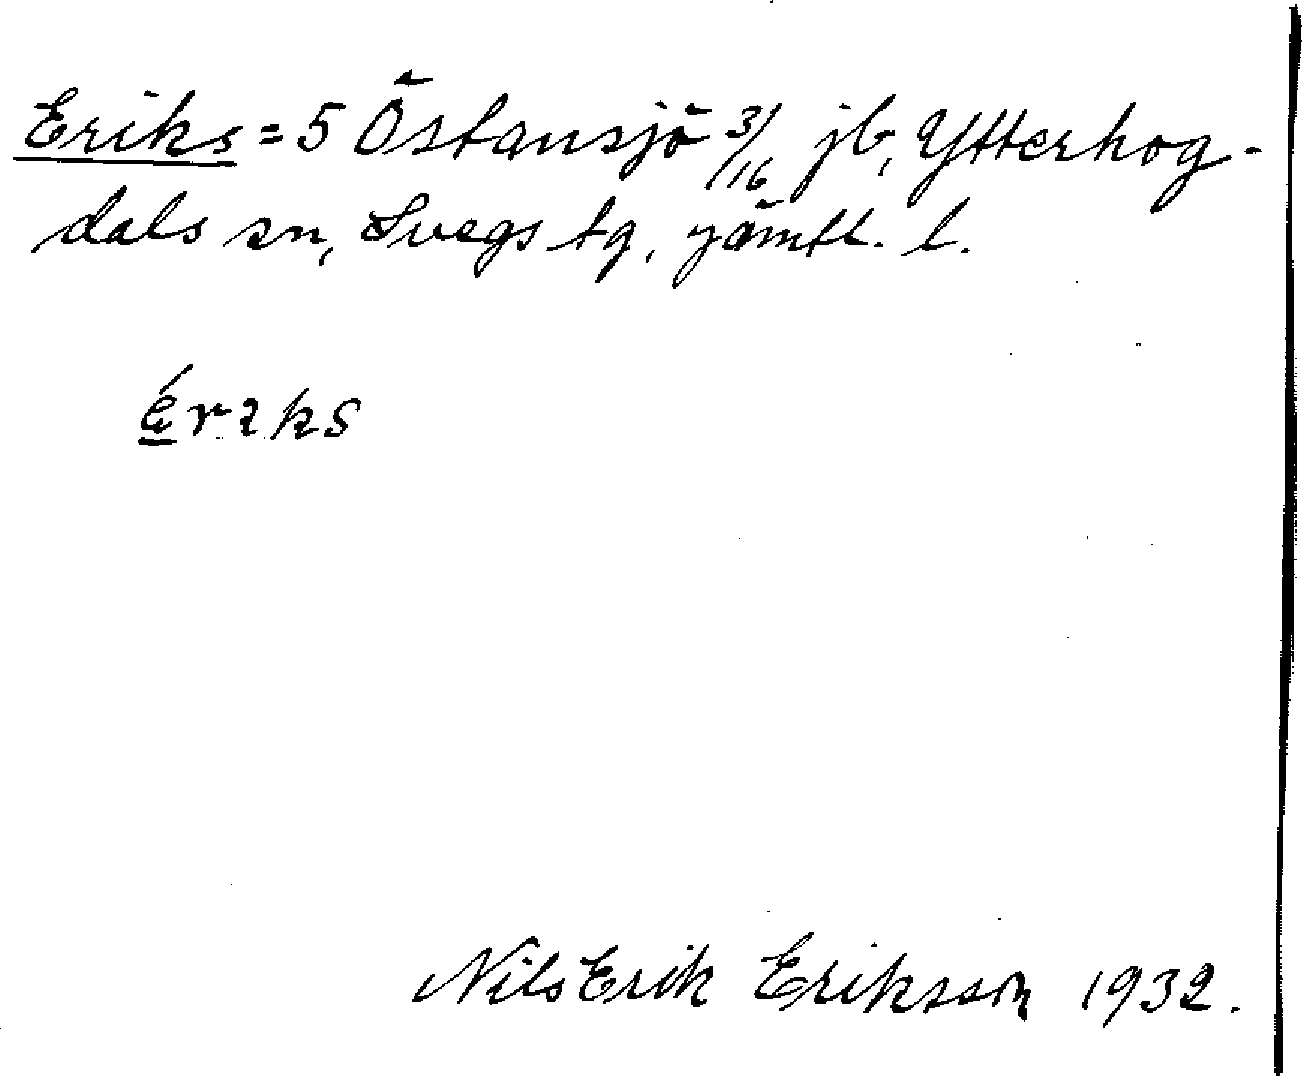 Eriks = 5 Östansjö 3/16 jb, Ytterhog-
dals sn, Svegs tg, Jämtl. l.
Nils Erik Eriksson 1932.